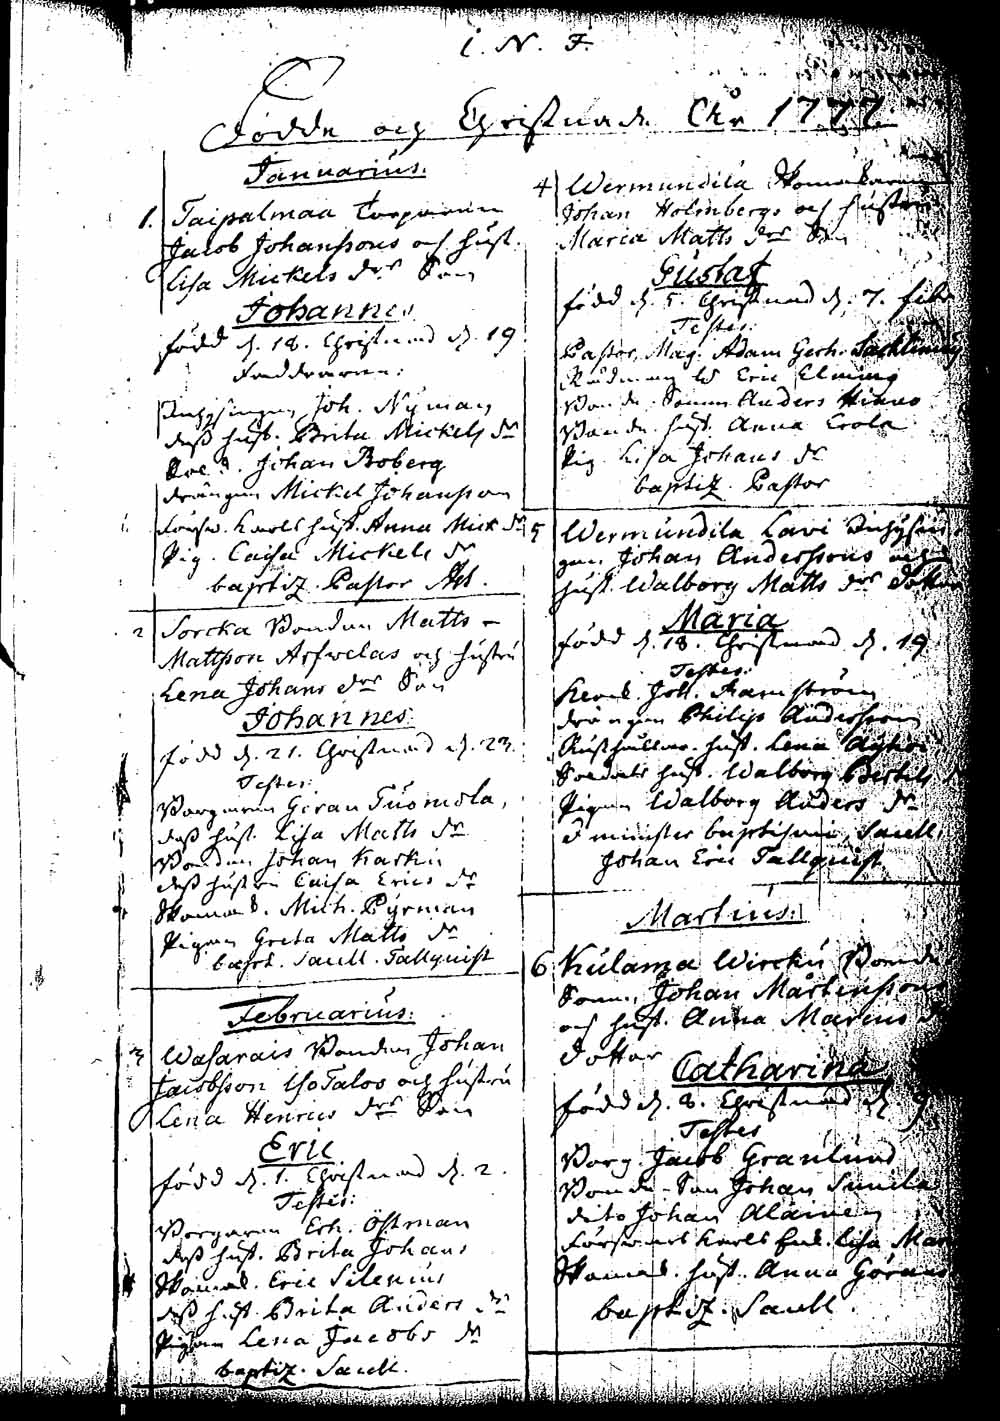 I. N. J.
Födde och Christnade Åhr 1777.
Januarius.
1. Taipalmaa Torparen
Jacob Johanssons och hust.
Lisa Mickels dr Son
Johannes
född d. 18. Christnad d. 19
Faddrarne:
Inhysingen Joh. Nyman
dess hust. Brita Mickels dr
Johan Boberg
drängen Mickel Johansson
Karls hust. Anna Mick dr
Pig. Caisa Mickels dr
baptiz. Pastor
2 Sorcka Bonden Matts
Mattsson Arfwelas och hustru
Lena Johans dr Son
Johannes
född d. 21. Christnad d. 23.
Testes:
Borgaren Göran Tuomola,
dess hust. Lisa Matts dr
Bonden Johan Kaskis
dess hustru Caisa Erics dr
Skomak. Mich. Pyrman
Pigan Greta Matts dr
bapt. Sacell. Tallquist
Februarius:
3 Wasarais Bonden Johan
Jacobsson IsoTalos och hustru
Lena Henrics dr Son
Eric
född d. 1. Christnad d. 2.
Testes:
Borgaren Erh. Östman
dess hust. Brita Johans
Skomak. Eric Silenius
dess hust. Brita Anders dr
Pigan Lena Jacobs dr
baptiz. Sacell.
4 Wermundila Skomakaren
Johan Holmbergs och hustru
Maria Matts dr Son
Gustaf
född d. 5. Christnad d. 7. febr
Testes:
Pastor, Mag. Adam Gerh.
Rådman Eric Elming
Bonde-Sonen Anders
Bonde hust. Anna Erola
Pig. Lisa Johans dr
baptiz. Pastor
5 Wermundila Lavi Inhysin
gen Johan Anderssons och
hust. Walborg Matts dr Dotter
Maria
född d. 18. Christnad d. 19
Testes:
Joh. Ramström
drängen Philip Andersson
Rusthållar. hust. Lena
Soldats hust. Walborg Bertils
Pigan Walborg Anders dr
minister baptismi, Sacell.
Johan Eric Tallquist
Martius:
6 Kulama Wircku Bonde
Sonen, Johan Mårtenssons
och hust. Anna Marcus
Dotter
Catharina
född d. 8. Christnad d. 9
Testes
Borg. Jacob Granlund
Bonde-Son Johan
dito Johan Alainen
Karls Lisa
Skomak. hust. Anna Görans
baptiz. Sacell.